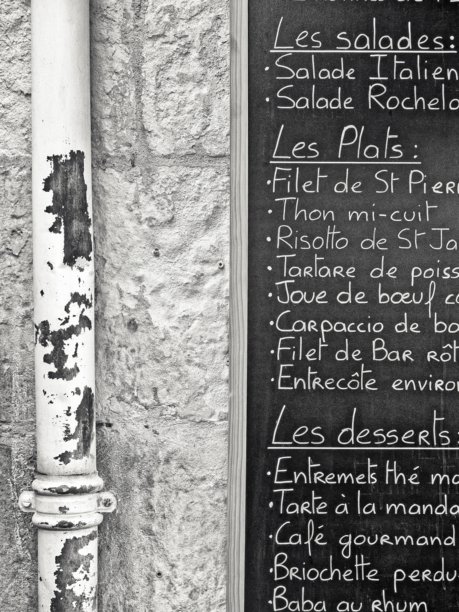 Les salades:
· Salade Italien
· Salade Rochelo
Les Plats:
· Filet de St Pier
· Thon mi-cuit
· Risotto de St Ja
· Tartare de poiss
· Joue de bœuf co
· Carpaccio de bo
· Filet de Bar rôt
· Entrecôte enviro
Les desserts:
· Entremets thé ma
· Tarte à la manda
· Café gourmand
· Briochette perdu
· Baba au rhum